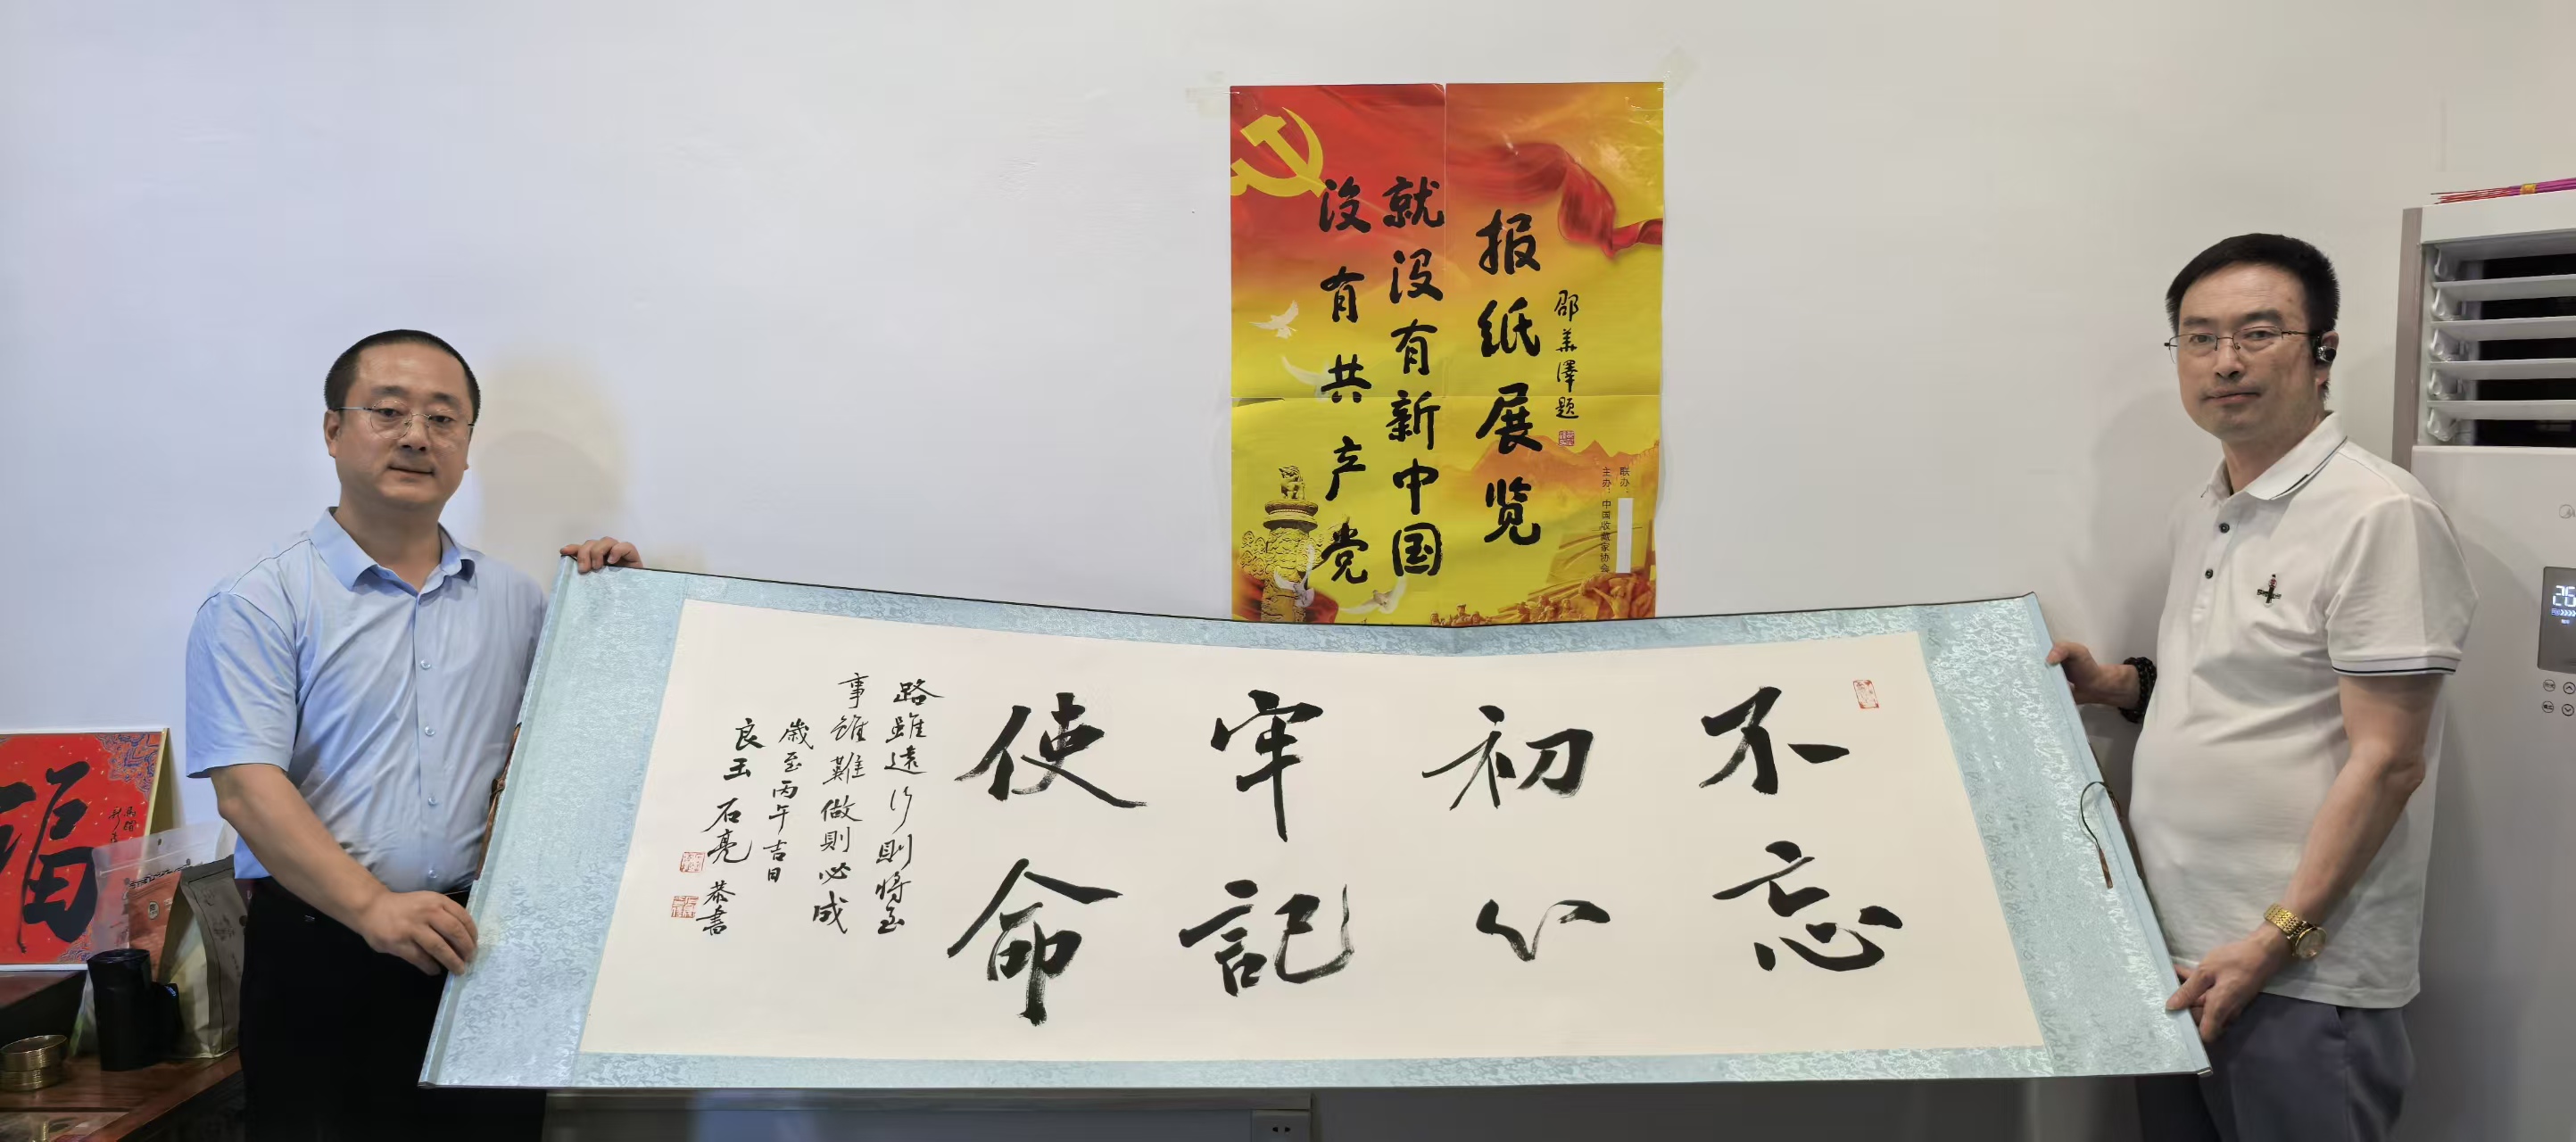 没有共产党
就没有新中国
报纸展览
邵华泽题
联办：
主办：中国收藏家协会
不忘
初心
牢記
使命
路雖遠行則將至
事雖難做則必成
歲至丙午吉日
良玉石亮恭書
福
26